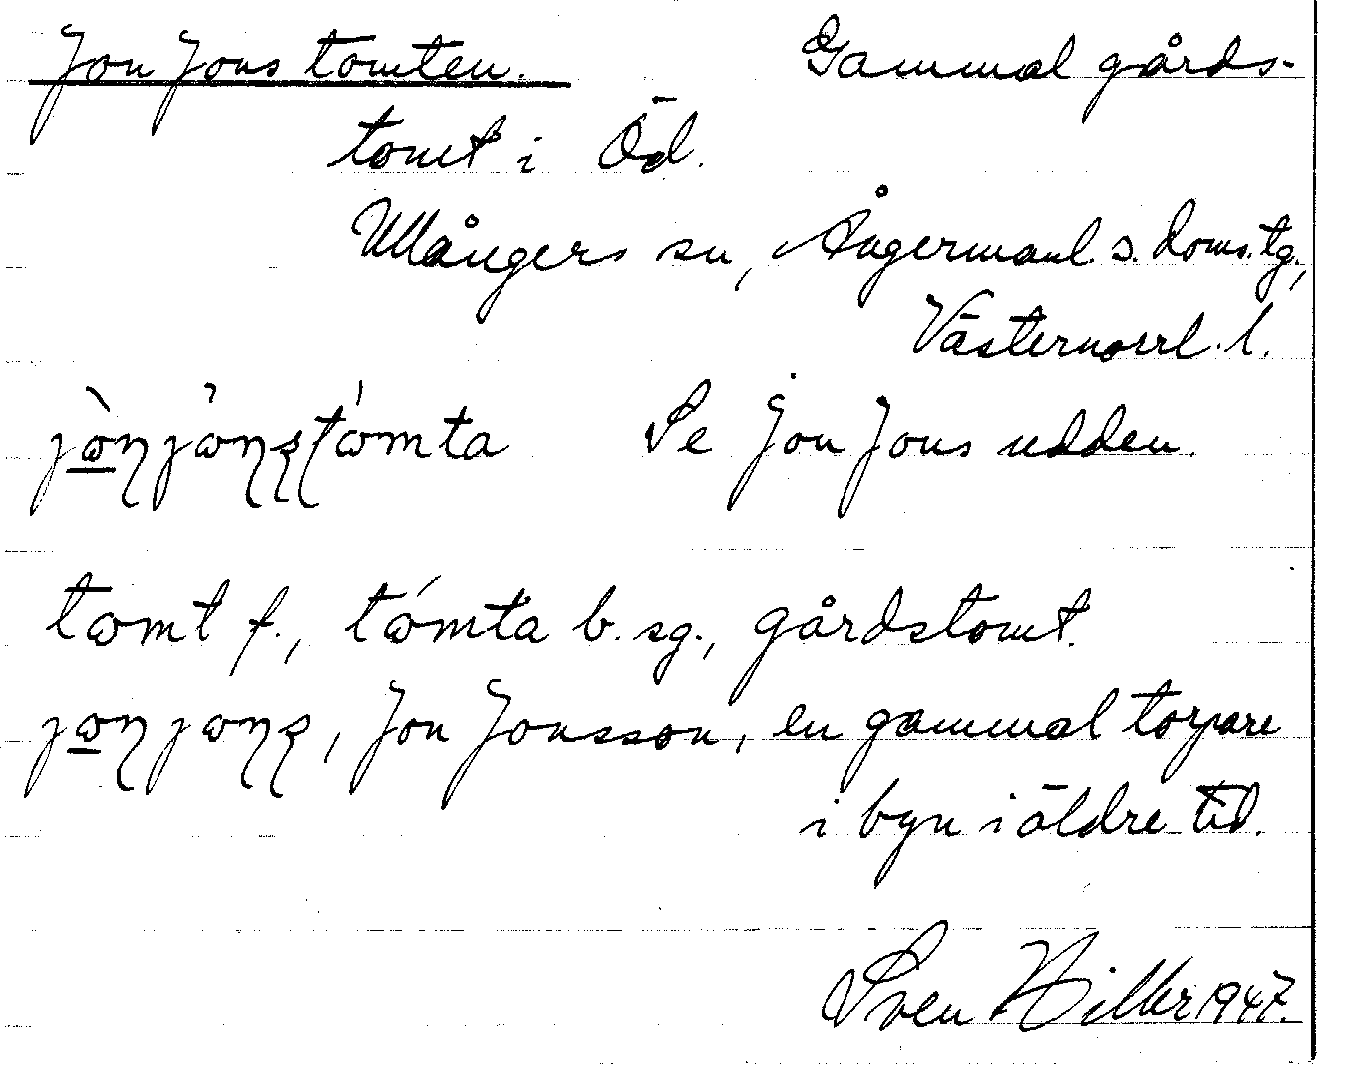 Jon Jons tomten. Gammal gårds-
tomt i Öd.
Ullångers sn, Ångermanl. s. doms. tg.,
Västernorrl. l.
Se Jon Jons udden.
tomt f., tómta b. sg., gårdstomt.
Jon Jonsson, en gammal torpare
i byn i äldre tid.
Sven Hiller 1947.